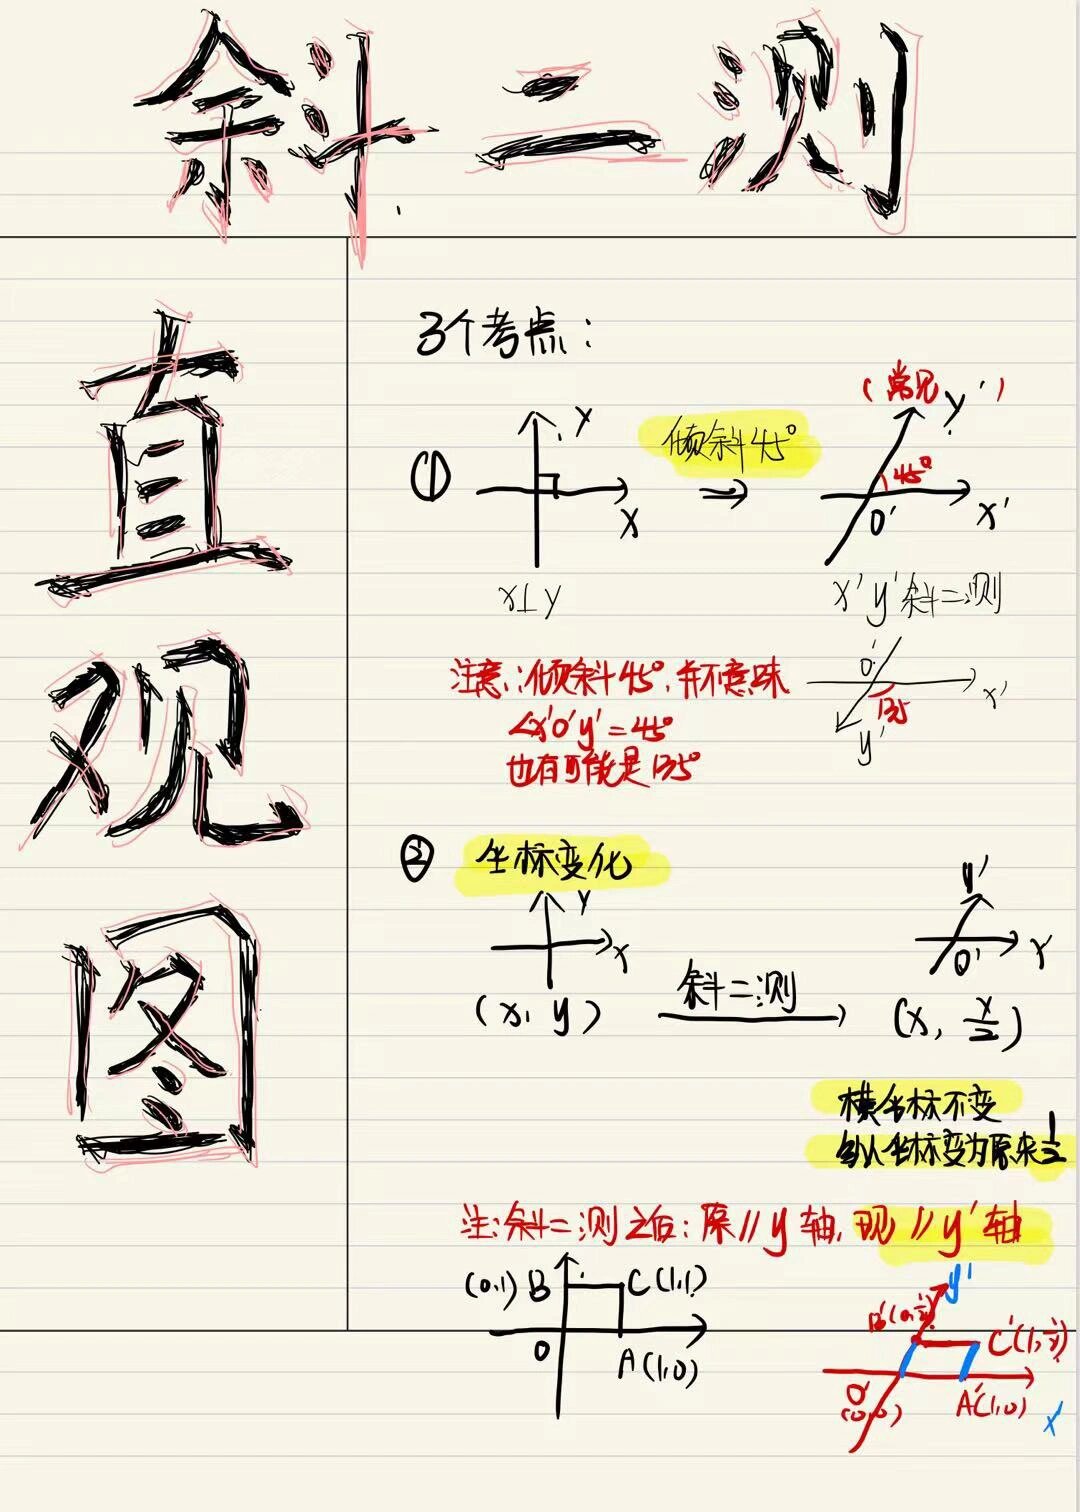 斜二测
直观图
3个考点:
①
y
x
x⊥y
倾斜45°
⇒
(常见)
y'
45°
O'
x'
x'y'斜二测
注意:倾斜45°,并不意味
∠x'O'y'=45°
也有可能是135°
O'
x'
135
y'
② 坐标变化
y
x
(x, y)
斜二测
y'
O'
x
(x, y/2)
横坐标不变
纵坐标变为原来1/2
注:斜二测之后:原∥y轴,现∥y'轴
(0,1) B
C(1,1)
O
A(1,0)
y'
B'(0,1/2)
C'(1,1/2)
O'
(0,0)
A'(1,0)
x'